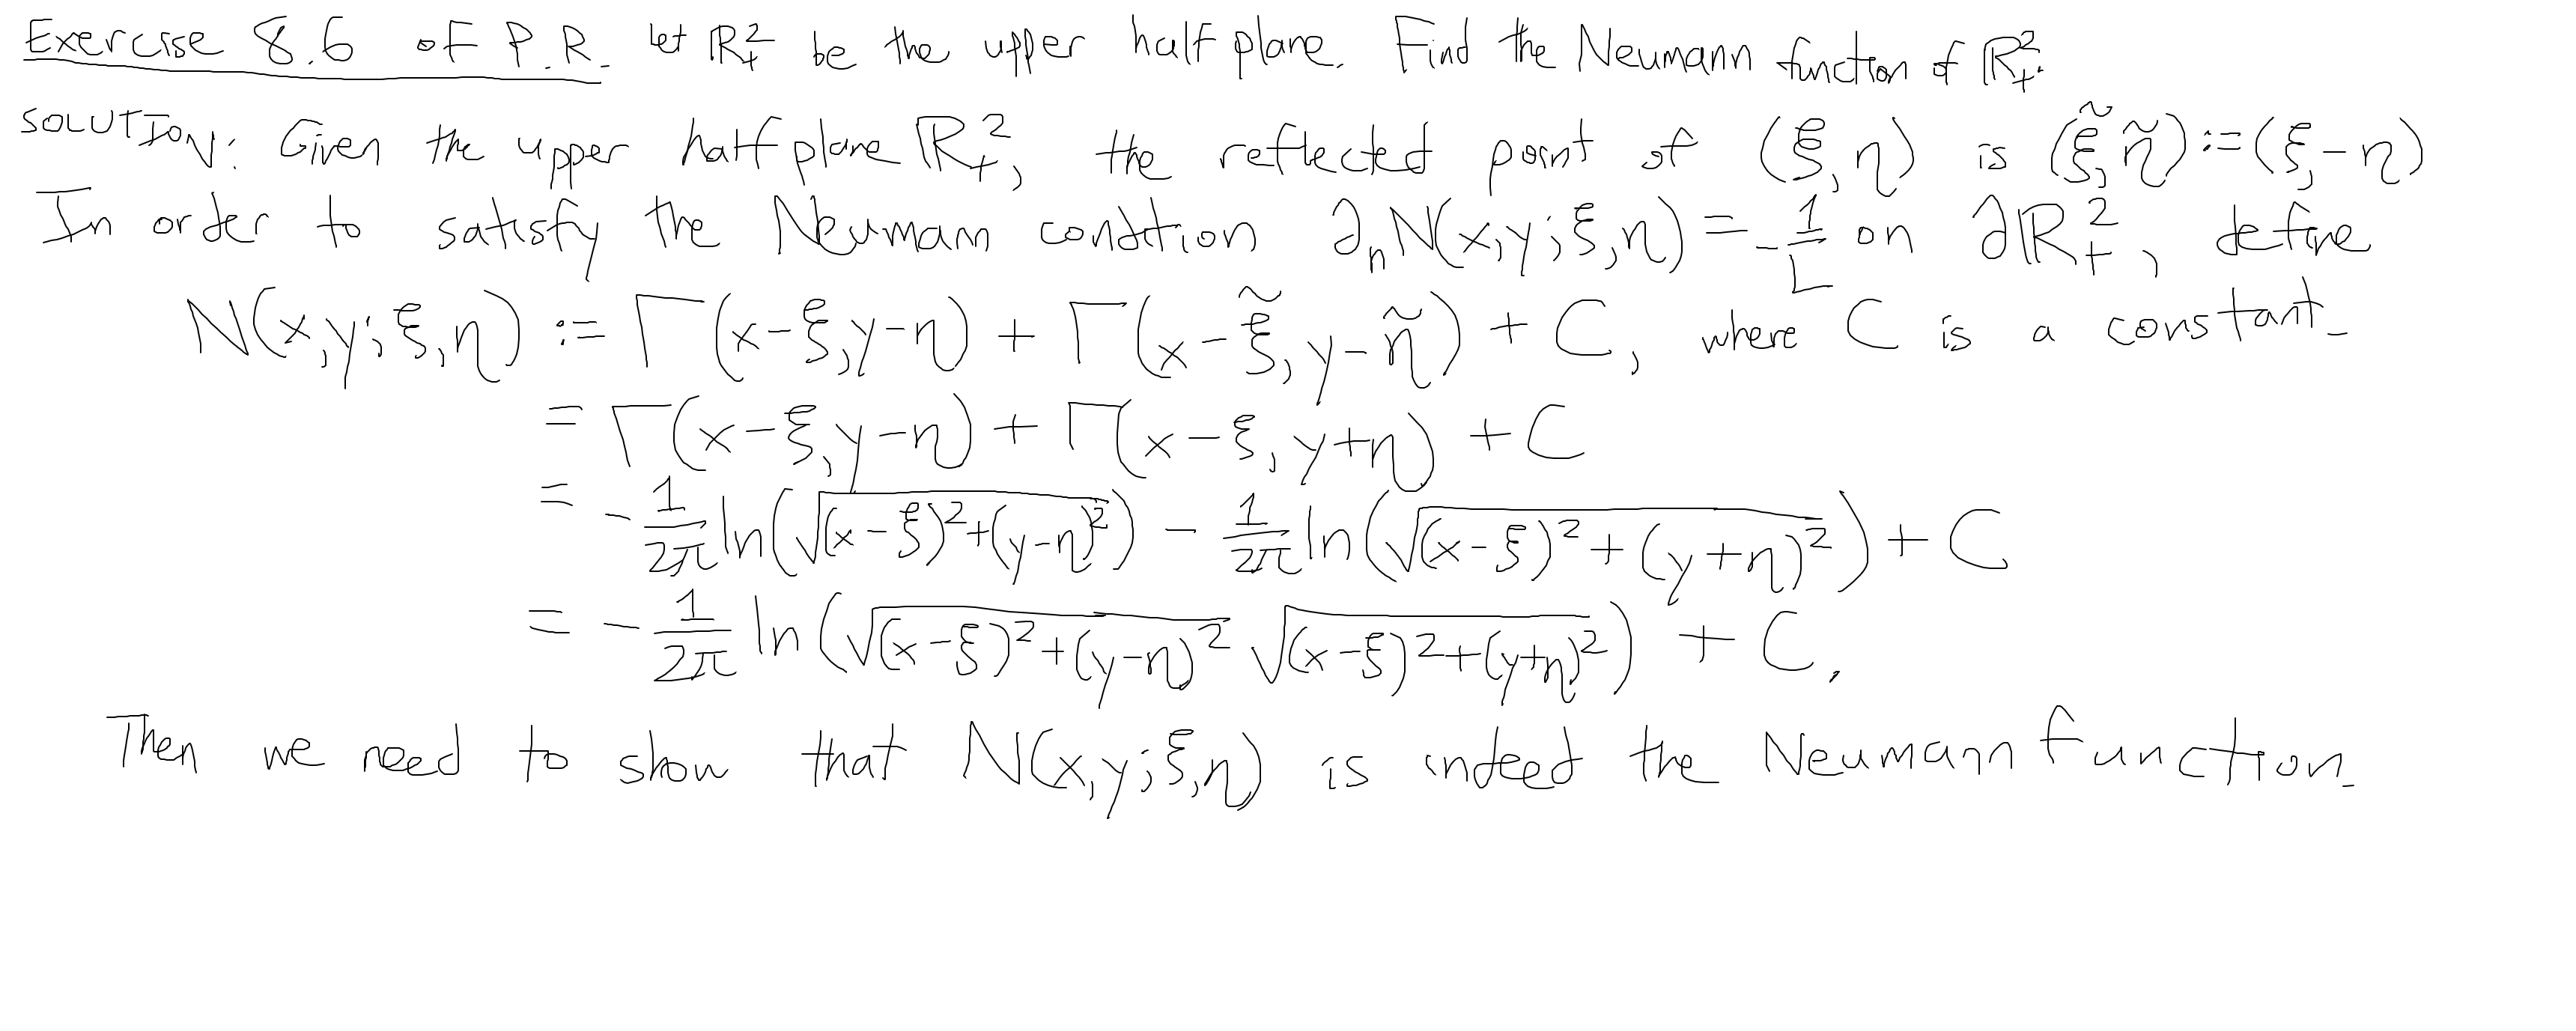 Exercise 8.6 of P.R. Let ℝ₊² be the upper half plane. Find the Neumann function of ℝ₊².
SOLUTION: Given the upper half plane ℝ₊², the reflected point of (ξ,η) is (ξ̃,η̃):=(ξ,-η)
In order to satisfy the Neumann condition ∂ₙN(x,y;ξ,η) = -1/L on ∂ℝ₊², define
N(x,y;ξ,η) := Γ(x-ξ,y-η) + Γ(x-ξ̃,y-η̃) + C, where C is a constant.
= Γ(x-ξ,y-η) + Γ(x-ξ,y+η) + C
= -1/2π ln(√((x-ξ)²+(y-η)²)) - 1/2π ln(√((x-ξ)²+(y+η)²)) + C
= -1/2π ln(√((x-ξ)²+(y-η)²) √((x-ξ)²+(y+η)²)) + C.
Then we need to show that N(x,y;ξ,η) is indeed the Neumann function.